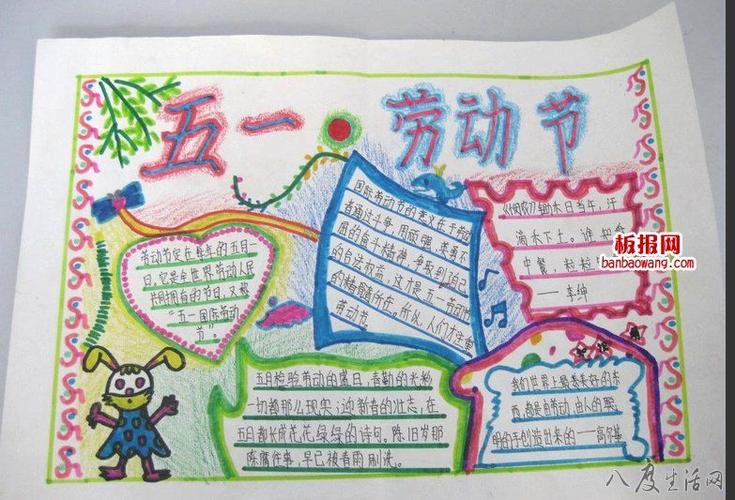 五一 劳动节
劳动节定在每年的五月一
日,它是全世界劳动人民
共同拥有的节日,又称
“五一国际劳动
节”。
国际劳动节的意义在于劳动
者通过斗争,用顽强、英勇不
屈的奋斗精神,争取到自己
的合法权益,这才是五一劳动节
的精髓所在。所以,人们才注重
劳动节。
《悯农》锄禾日当午,汗
滴禾下土。谁知盘
中餐,粒粒
——李绅
板报网
banbaowang.com
五月检验劳动的盛日,春勤的
一切都那么现实;迎新春的壮志,在
五月都长成花花绿绿的诗句。陈旧岁那
陈腐往事,早已被春雨刷洗。
我们世界上最美好的东
西,都是由劳动、由人的聪
明的手创造出来的——高尔基
八度生活网